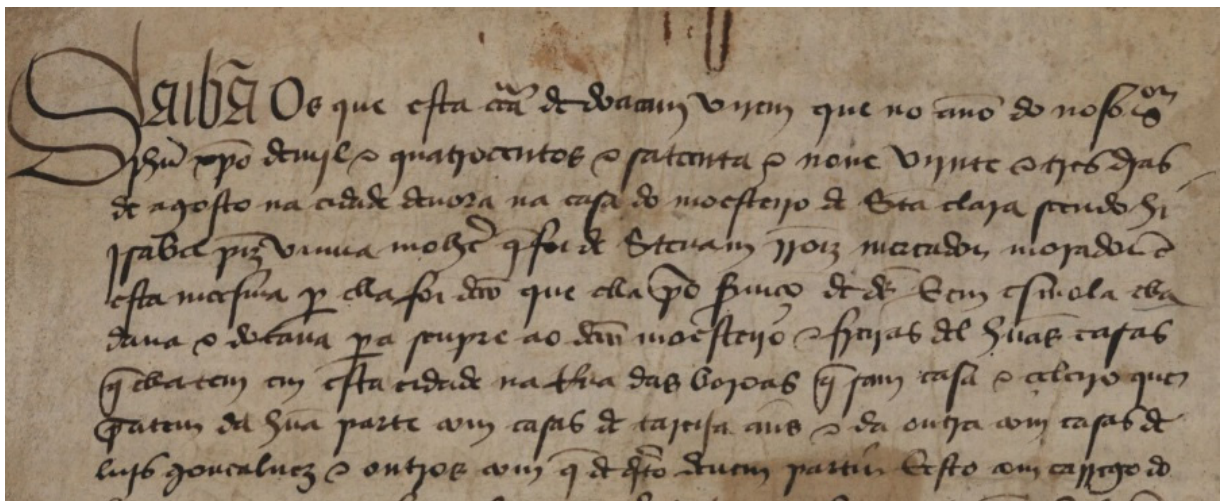 Saibã Os que esta cã de doacam virem que no ano do noso sor
Jhũ xpo de mjl e quatrocentos e satenta e nove vijnte e tres djas
de agosto na cidade devora na casa do moesteiro de Sta clara seendo hi
Jsabel piz viuva molher q foi de Stevam Roiz mercador morador ẽ
esta meesma per ella foi dito que ella por serviço de ds e em esmola ella
dava e doava pera senpre ao dito moesteiro e freiras del hũas casas
q ella tem em esta cidade na Rua das q sam casa e celeiro que
partem da hũa parte com casas de tareija anes e da outra com casas de
luis gonçaluez e outros com q de dto devem partir E esto com carrego do